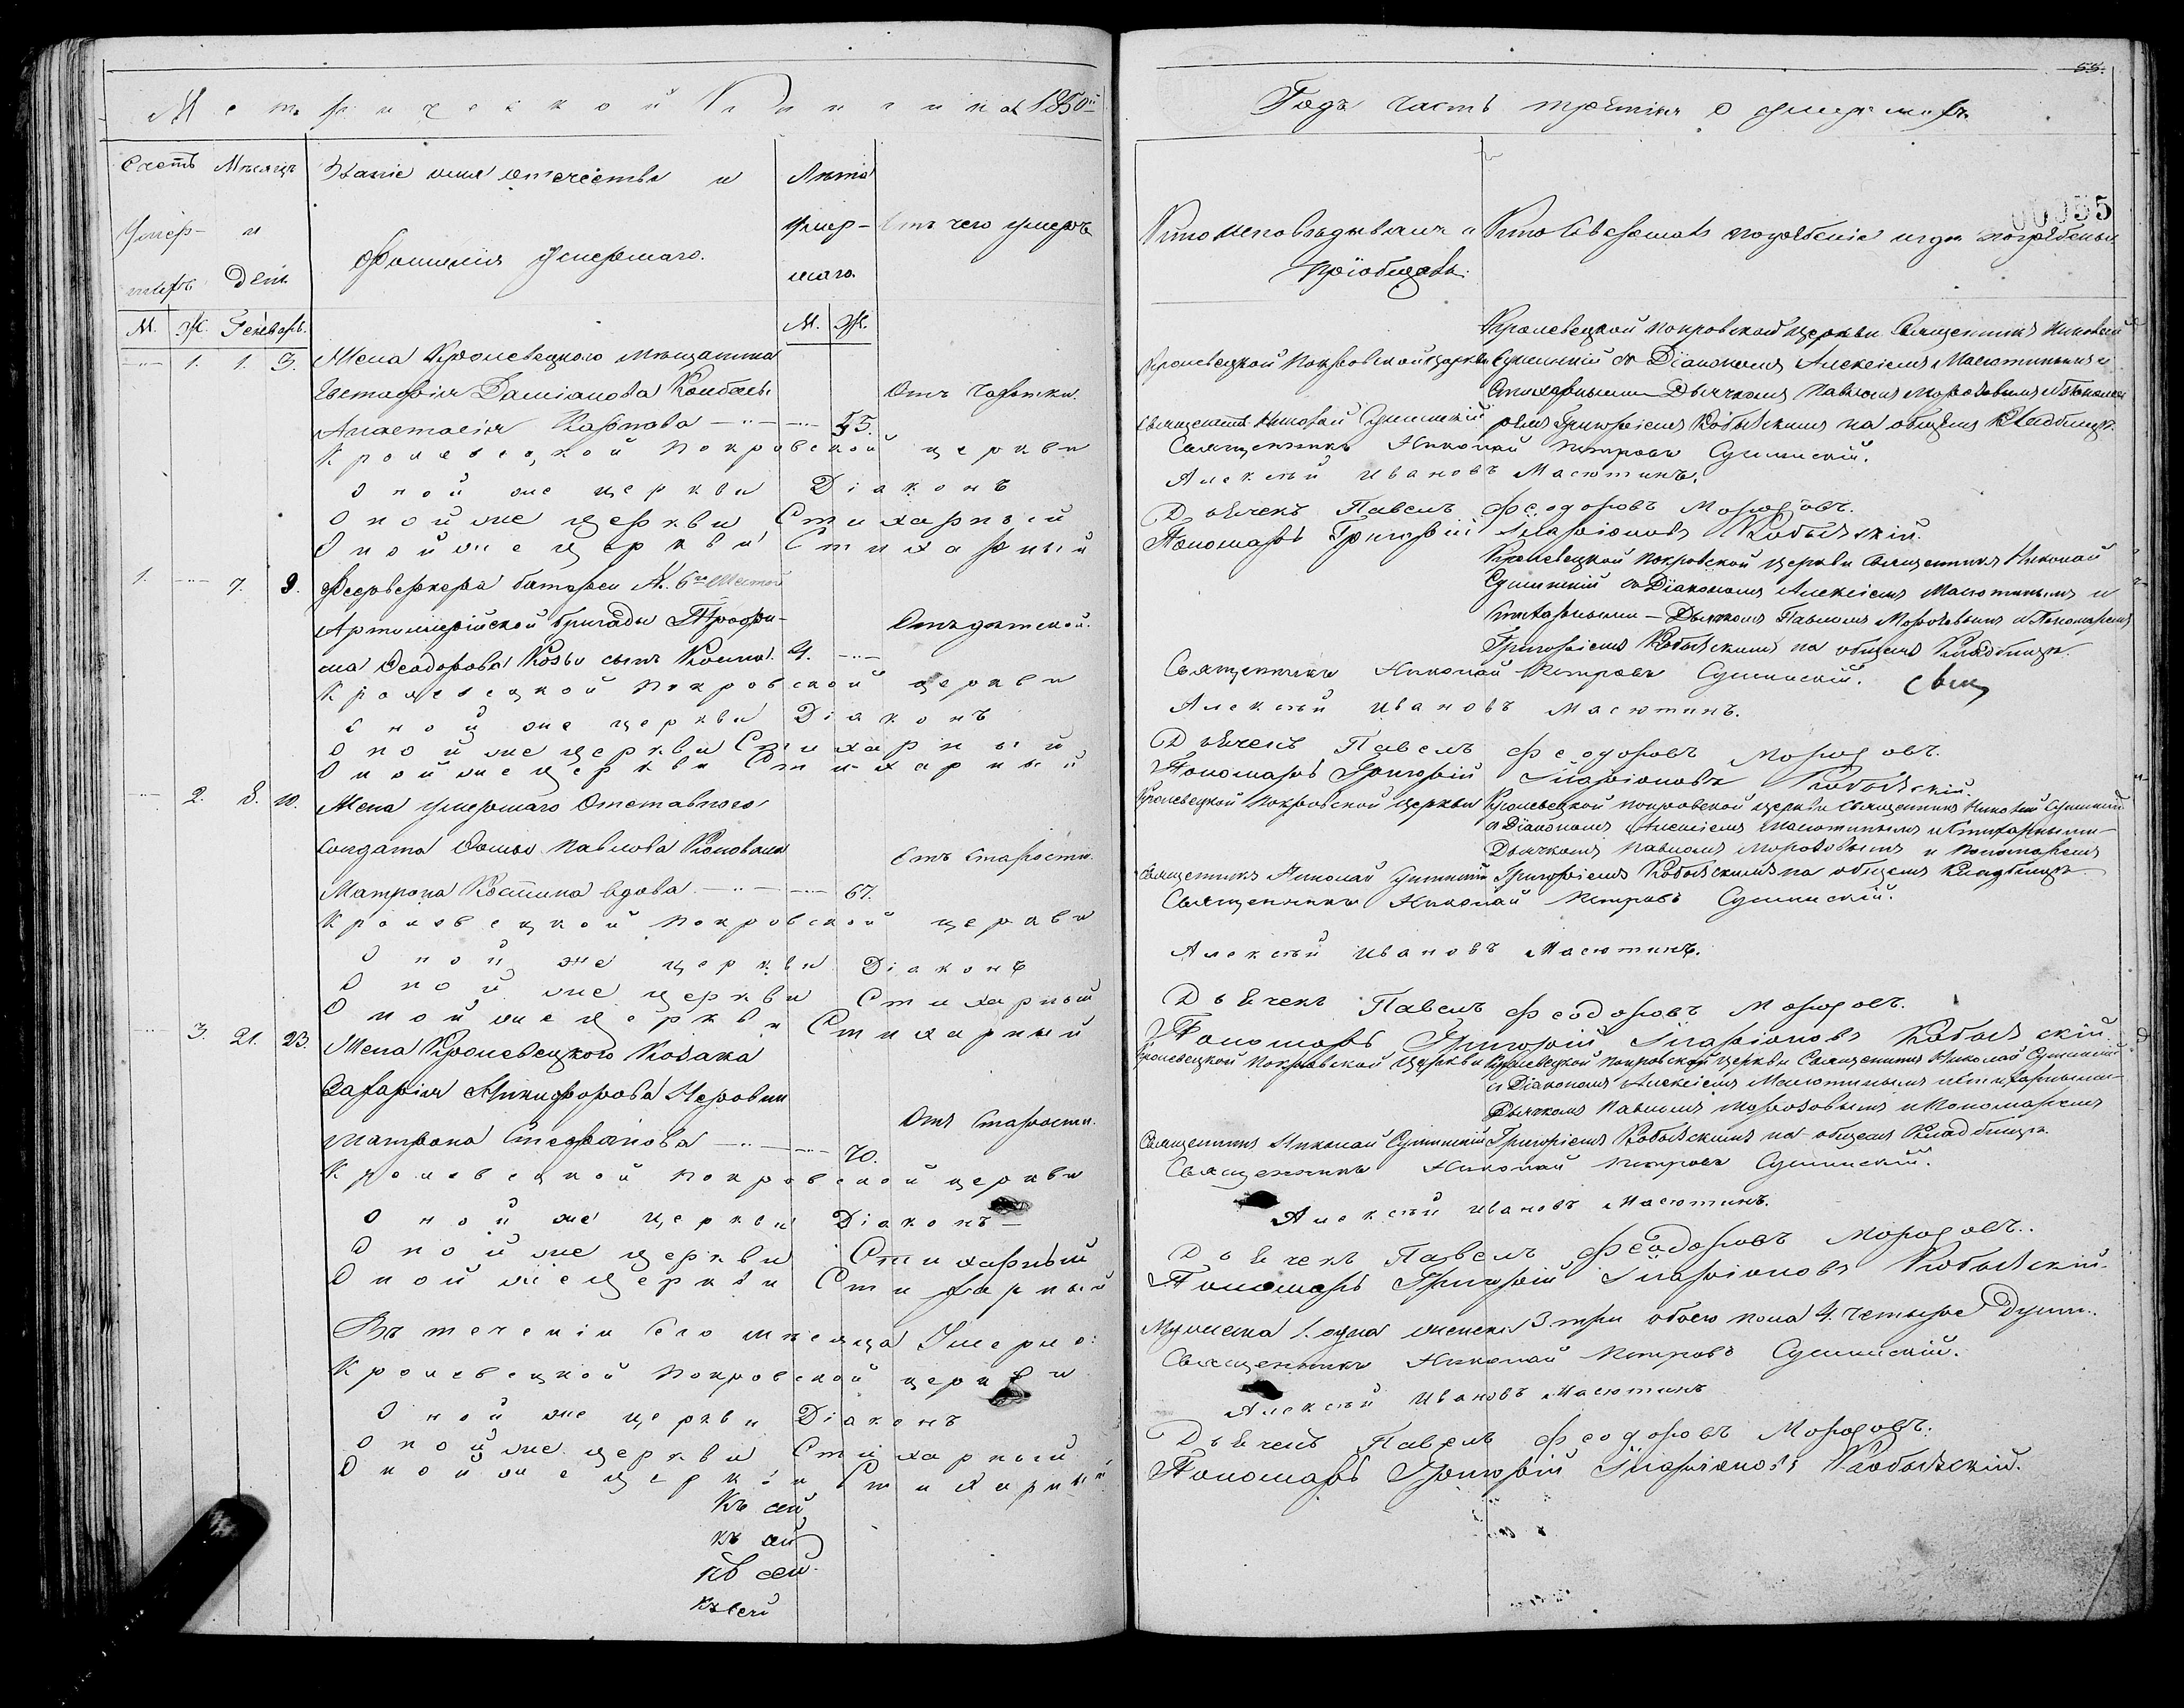 Метрической Книги на 1850й
Счетъ Мѣсяцъ Званіе имя отечество и Лѣта
Умер- и Фамилія Умершаго. Умер- Отъ чего умеръ
шихъ День шаго.
М. Ж. Генварь. М. Ж.
1. 1. 3. Жена Кролевецкаго Мѣщанина
Евстафія Даміанова
Анастасія Карпова 55. Отъ Чахотки.
Кролевецкой Покровской церкви
Оной же церкви Діаконъ
Оной же церкви Стихарный
Оной же церкви Стихарный
1. 7. 9. Феерверкера батареи №. 6й Шестой
Артиллерійской бригады Трофи-
ма Феодорова Козы сынъ Косма. 4. Отъ дѣтской.
Кролевецкой Покровской церкви
Оной же церкви Діаконъ
Оной же церкви Стихарный
Оной же церкви Стихарный
2. 8. 10. Жена умершаго Отставного
Солдата Павлова Коновала
Матрона Костина вдова 67. Отъ Старости.
Кролевецкой Покровской церкви
Оной же церкви Діаконъ
Оной же церкви Стихарный
Оной же церкви Стихарный
3. 21. 23. Жена Кролевецкаго Козака
Захарія Никифорова
Матрона Стефанова 70. Отъ Старости.
Кролевецкой Покровской церкви
Оной же церкви Діаконъ
Оной же церкви Стихарный
Оной же церкви Стихарный
Въ теченіи сего мѣсяца Умерло:
Кролевецкой Покровской церкви
Оной же церкви Діаконъ
Оной же церкви Стихарный
Оной же церкви Стихарный
Къ сей
къ сей
къ сей
къ сей
55.
Годъ часть третія о умершихъ
00055
Кто исповѣдывалъ и Кто Совершалъ погребеніе и гдѣ погребены
Пріобщалъ.
Кролевецкой Покровской церкви Священникъ Николай
Кролевецкой Покровской церкви Сушинскій съ Діакономъ Алексіемъ Масютинымъ и
Стихарными Дьячкомъ Павломъ Морозовымъ и Понома-
Священникъ Николай Сушинскій ремъ Григоріемъ Кобылскимъ на общемъ Кладбищѣ.
Священникъ Николай Петровъ Сушинскій.
Алексѣй Ивановъ Масютинъ.
Дьячекъ Павелъ Феодоровъ Морозовъ.
Пономарь Григорій Иларіоновъ Кобылскій.
Кролевецкой Покровской церкви Священникъ Николай
Сушинскій съ Діакономъ Алексіемъ Масютинымъ и
Стихарными Дьячкомъ Павломъ Морозовымъ и Пономаремъ
Григоріемъ Кобылскимъ на общемъ Кладбищѣ.
Священникъ Николай Петровъ Сушинскій. Свящ
Алексѣй Ивановъ Масютинъ.
Дьячекъ Павелъ Феодоровъ Морозовъ.
Пономарь Григорій Иларіоновъ Кобылскій.
Кролевецкой Покровской церкви Кролевецкой Покровской церкви Священникъ Николай Сушинскій
съ Діакономъ Алексіемъ Масютинымъ и Стихарными
Дьячкомъ Павломъ Морозовымъ и Пономаремъ
Священникъ Николай Сушинскій Григоріемъ Кобылскимъ на общемъ Кладбищѣ
Священникъ Николай Петровъ Сушинскій.
Алексѣй Ивановъ Масютинъ.
Дьячекъ Павелъ Феодоровъ Морозовъ.
Пономарь Григорій Иларіоновъ Кобылскій
Кролевецкой Покровской Церкви Кролевецкой Покровской церкви Священникъ Николай Сушинскій
съ Діакономъ Алексіемъ Масютинымъ и Стихарными
Дьячкомъ Павломъ Морозовымъ и Пономаремъ
Священникъ Николай Сушинскій Григоріемъ Кобылскимъ на общемъ Кладбищѣ.
Священникъ Николай Петровъ Сушинскій.
Алексѣй Ивановъ Масютинъ.
Дьячекъ Павелъ Феодоровъ Морозовъ.
Пономарь Григорій Иларіоновъ Кобылскій.
Мужеска 1. одна женска 3 три обоего пола 4. четыре Души.
Священникъ Николай Петровъ Сушинскій.
Алексѣй Ивановъ Масютинъ
Дьячекъ Павелъ Феодоровъ Морозовъ.
Пономарь Григорій Иларіоновъ Кобылскій.